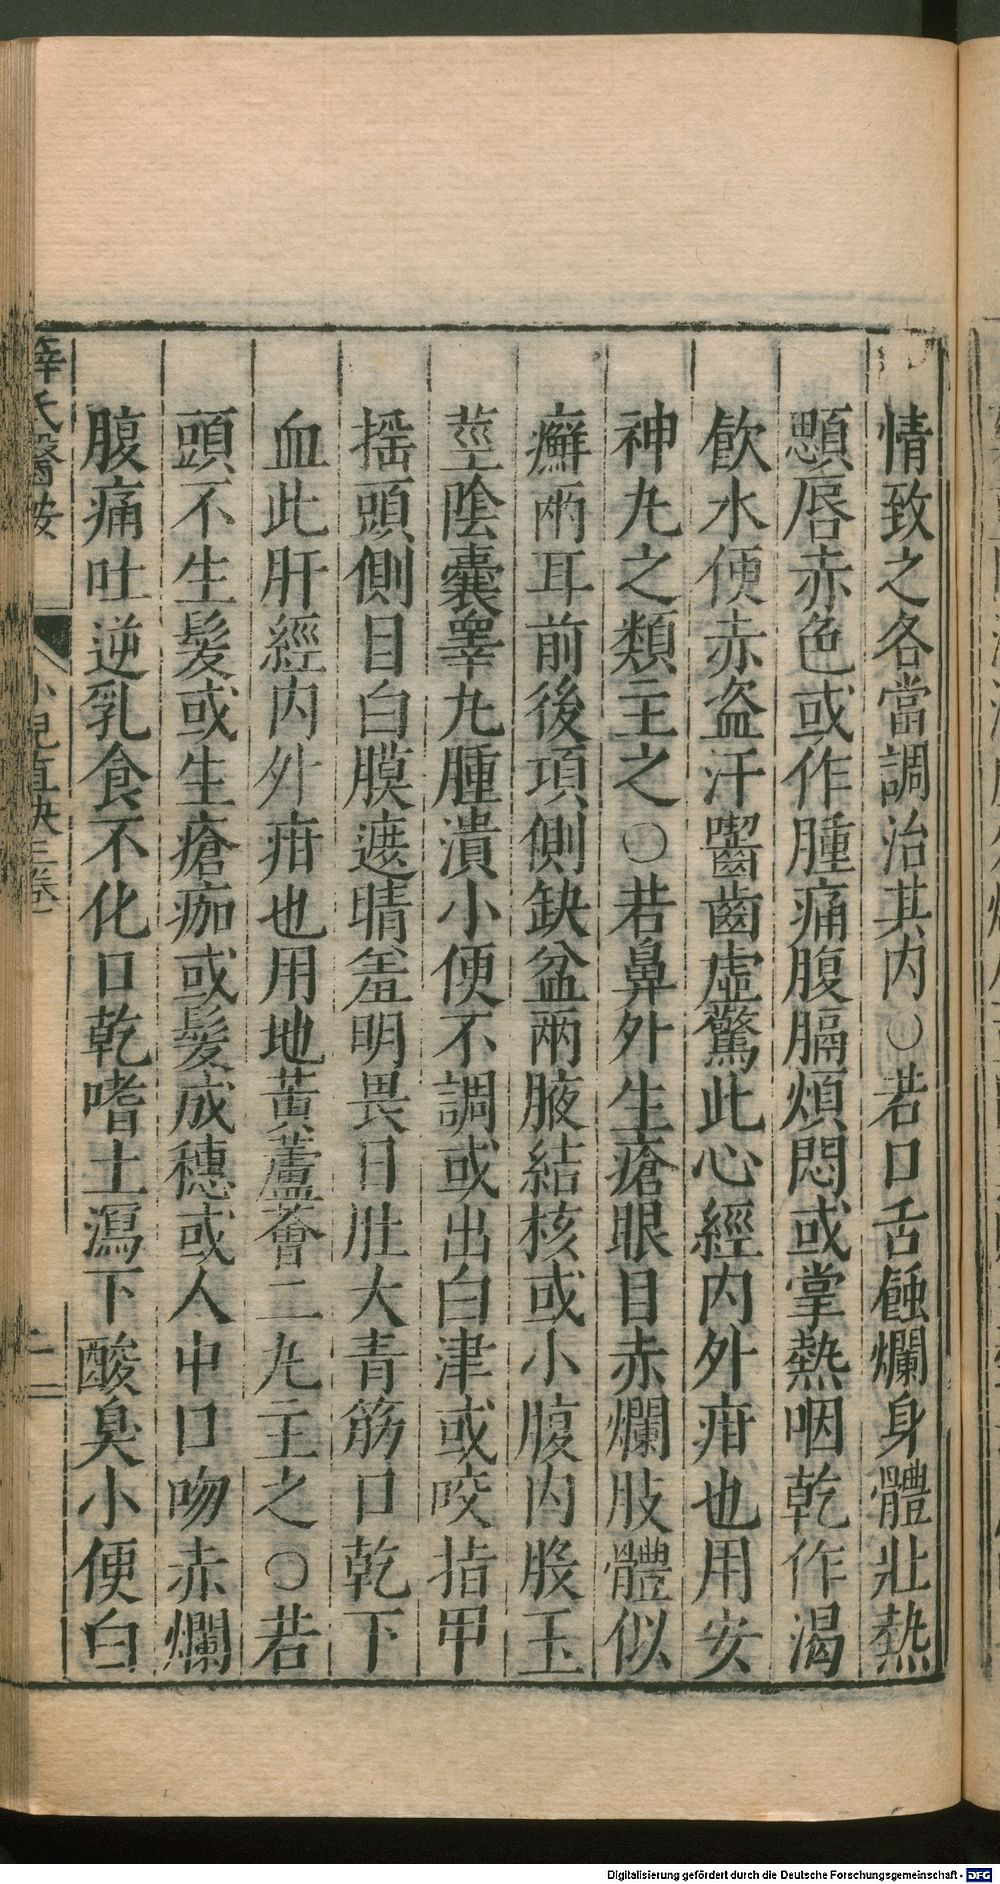 情致之各當調治其內○若口舌蝕爛身體壯熱
顋唇赤色或作腫痛腹膈煩悶或掌熱咽乾作渴
飲水便赤盜汗齧齒虛驚此心經內外疳也用安
神丸之類主之○若鼻外生瘡眼目赤爛肢體似
癬兩耳前後項側缺盆兩腋結核或小腹內股玉
莖陰囊睾丸腫潰小便不調或出白津或咬指甲
搖頭側目白膜遮睛羞明畏日肚大青筋口乾下
血此肝經內外疳也用地黃蘆薈二丸主之○若
頭不生髮或生瘡痂或髮成穗或人中口吻赤爛
腹痛吐逆乳食不化口乾嗜土瀉下酸臭小便白
薛氏醫按 小兒直訣三卷 二二
Digitalisierung gefördert durch die Deutsche Forschungsgemeinschaft - DFG